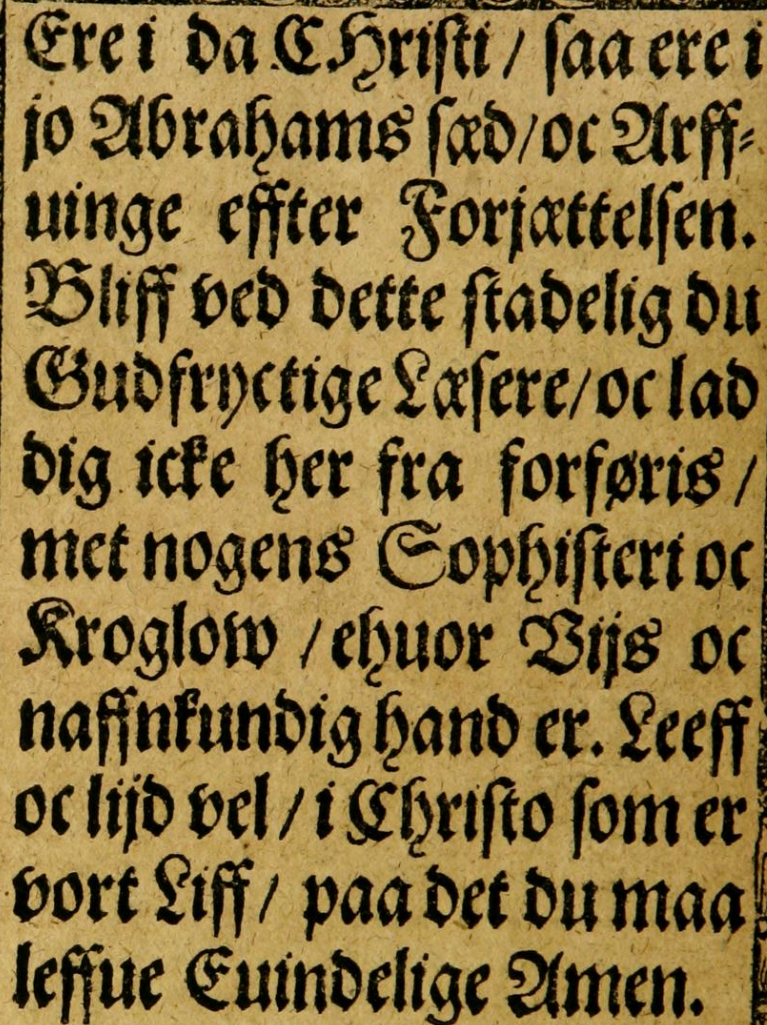 Ere i da CHristi / saa ere i
jo Abrahams sæd / oc Arff-
uinge effter Forjættelsen.
Bliff ved dette stadelig du
Gudfryctige Læsere / oc lad
dig icke her fra forføris /
met nogens Sophisteri oc
Kroglow / ehuor Vijs oc
naffnkundig hand er. Leeff
oc lijd vel / i Christo som er
vort Liff / paa det du maa
leffue Euindelige Amen.